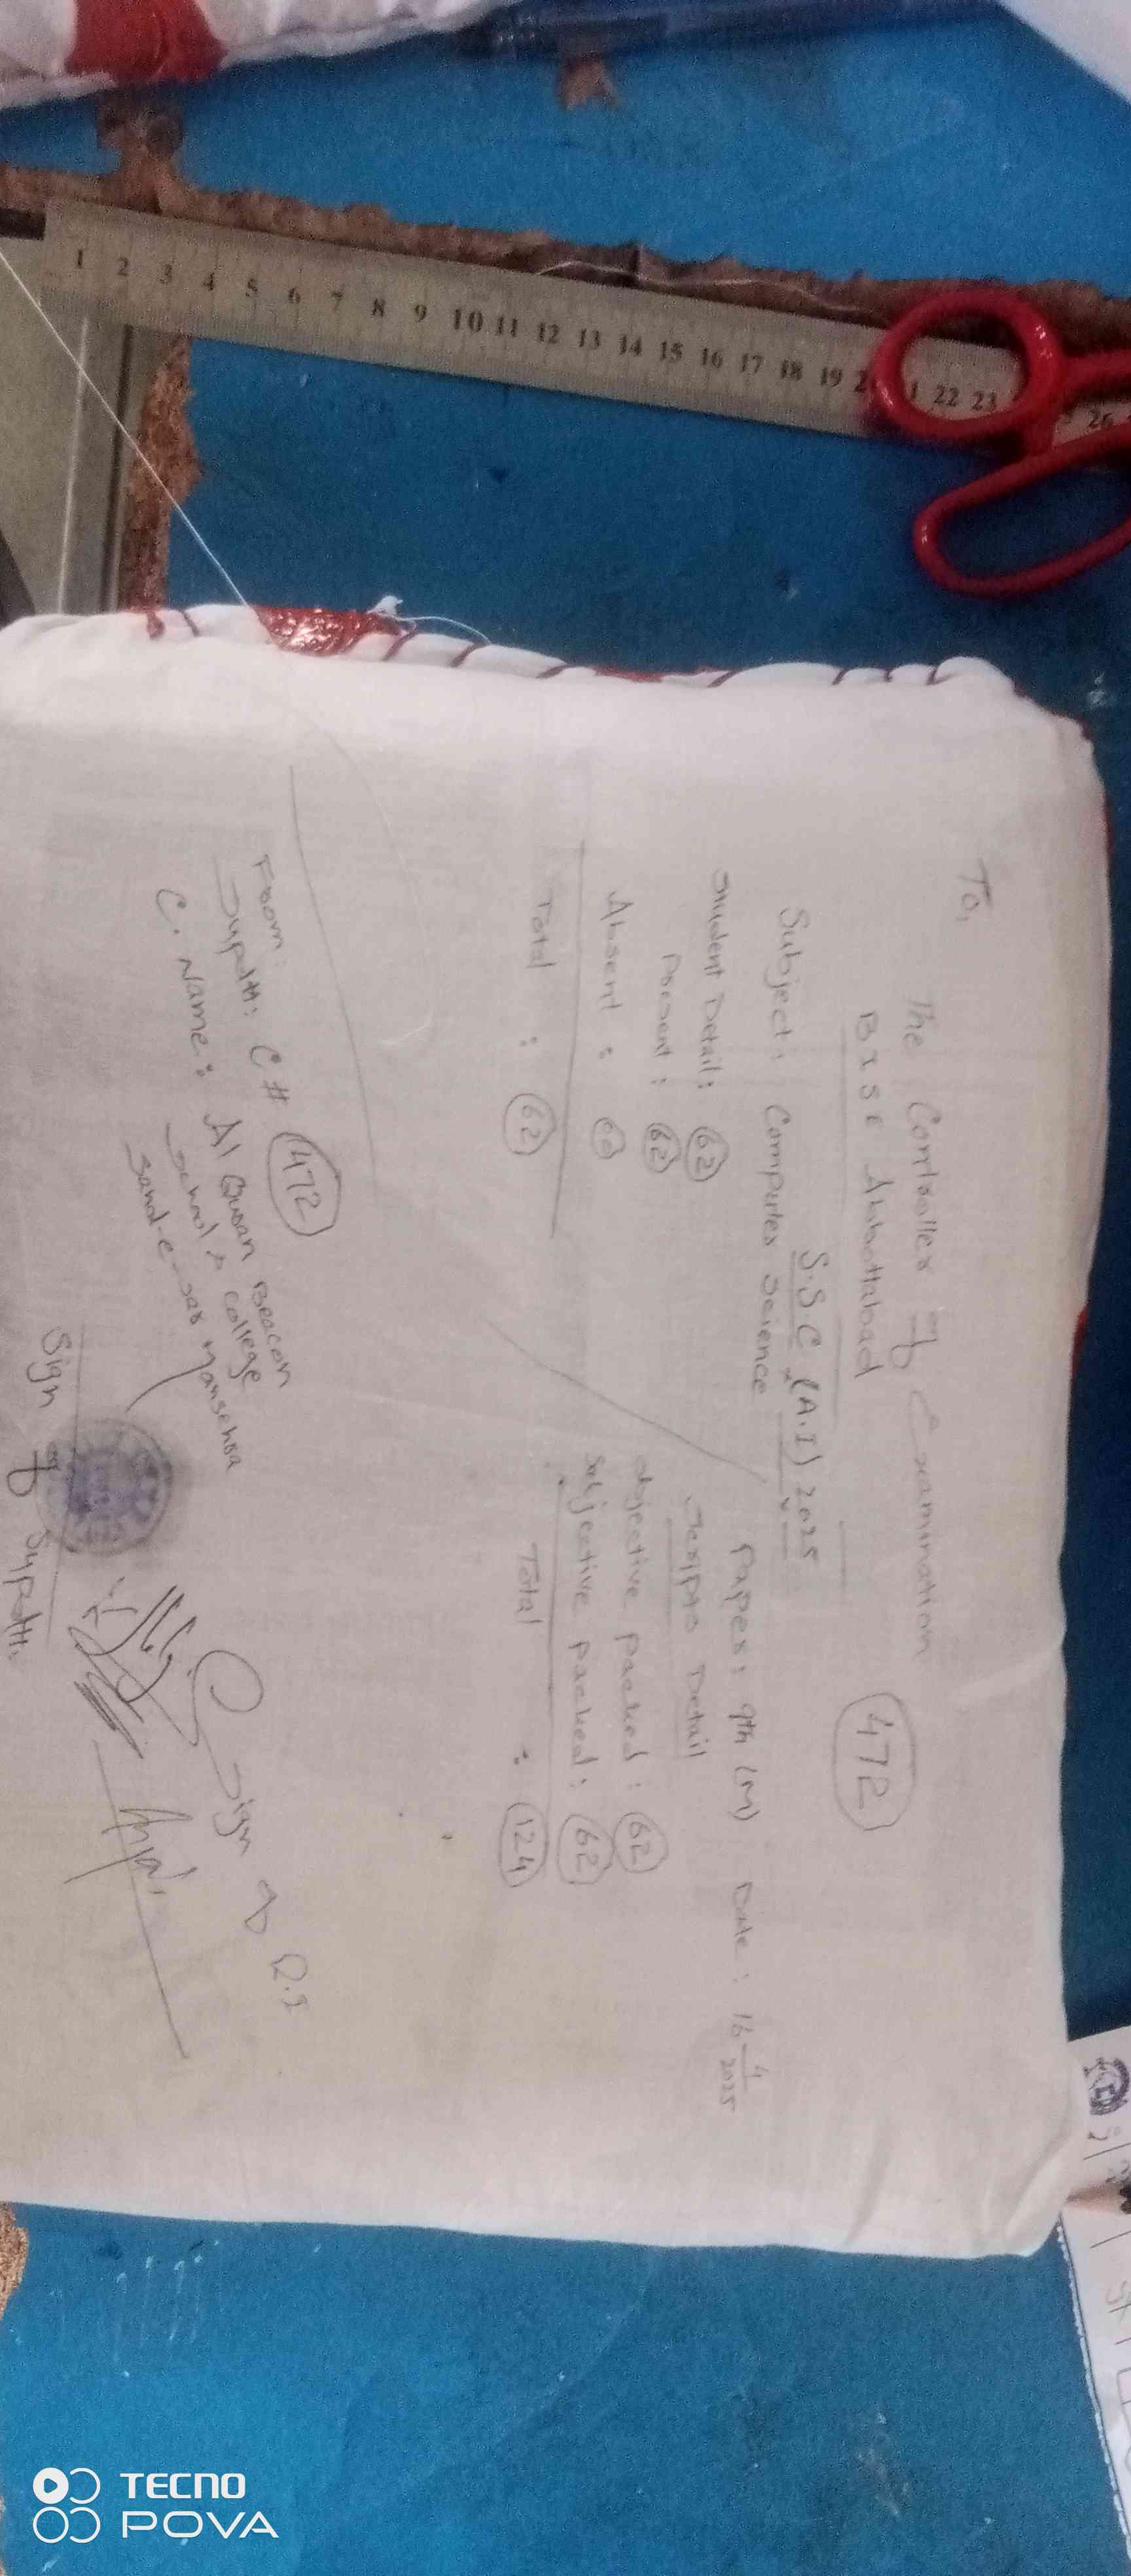 To,
The Controller of Examination
BISE Abbottabad
472
S.S.C (A.I) 2025
Subject: Computer Science Paper: 9th (M) Date: 16 4 2025
Student Detail: 62
Present: 62
Absent: 00
Total: 62
Scripts Detail
Objective packed: 62
Subjective packed: 62
Total: 124
From:
Supdtt: C# 472
C. Name: Al Quran Beacon
School & College
Sand-e-sar Mansehra
Sign of Supdtt.
Sign of R.I
1 2 3 4 5 6 7 8 9 10 11 12 13 14 15 16 17 18 19 22 23 26
TECNO
POVA